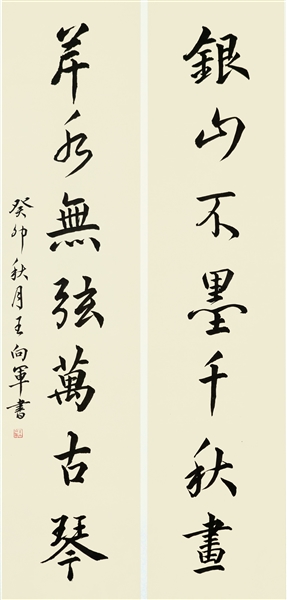 銀山不墨千秋畫
芹水無弦萬古琴
癸卯秋月王向軍書